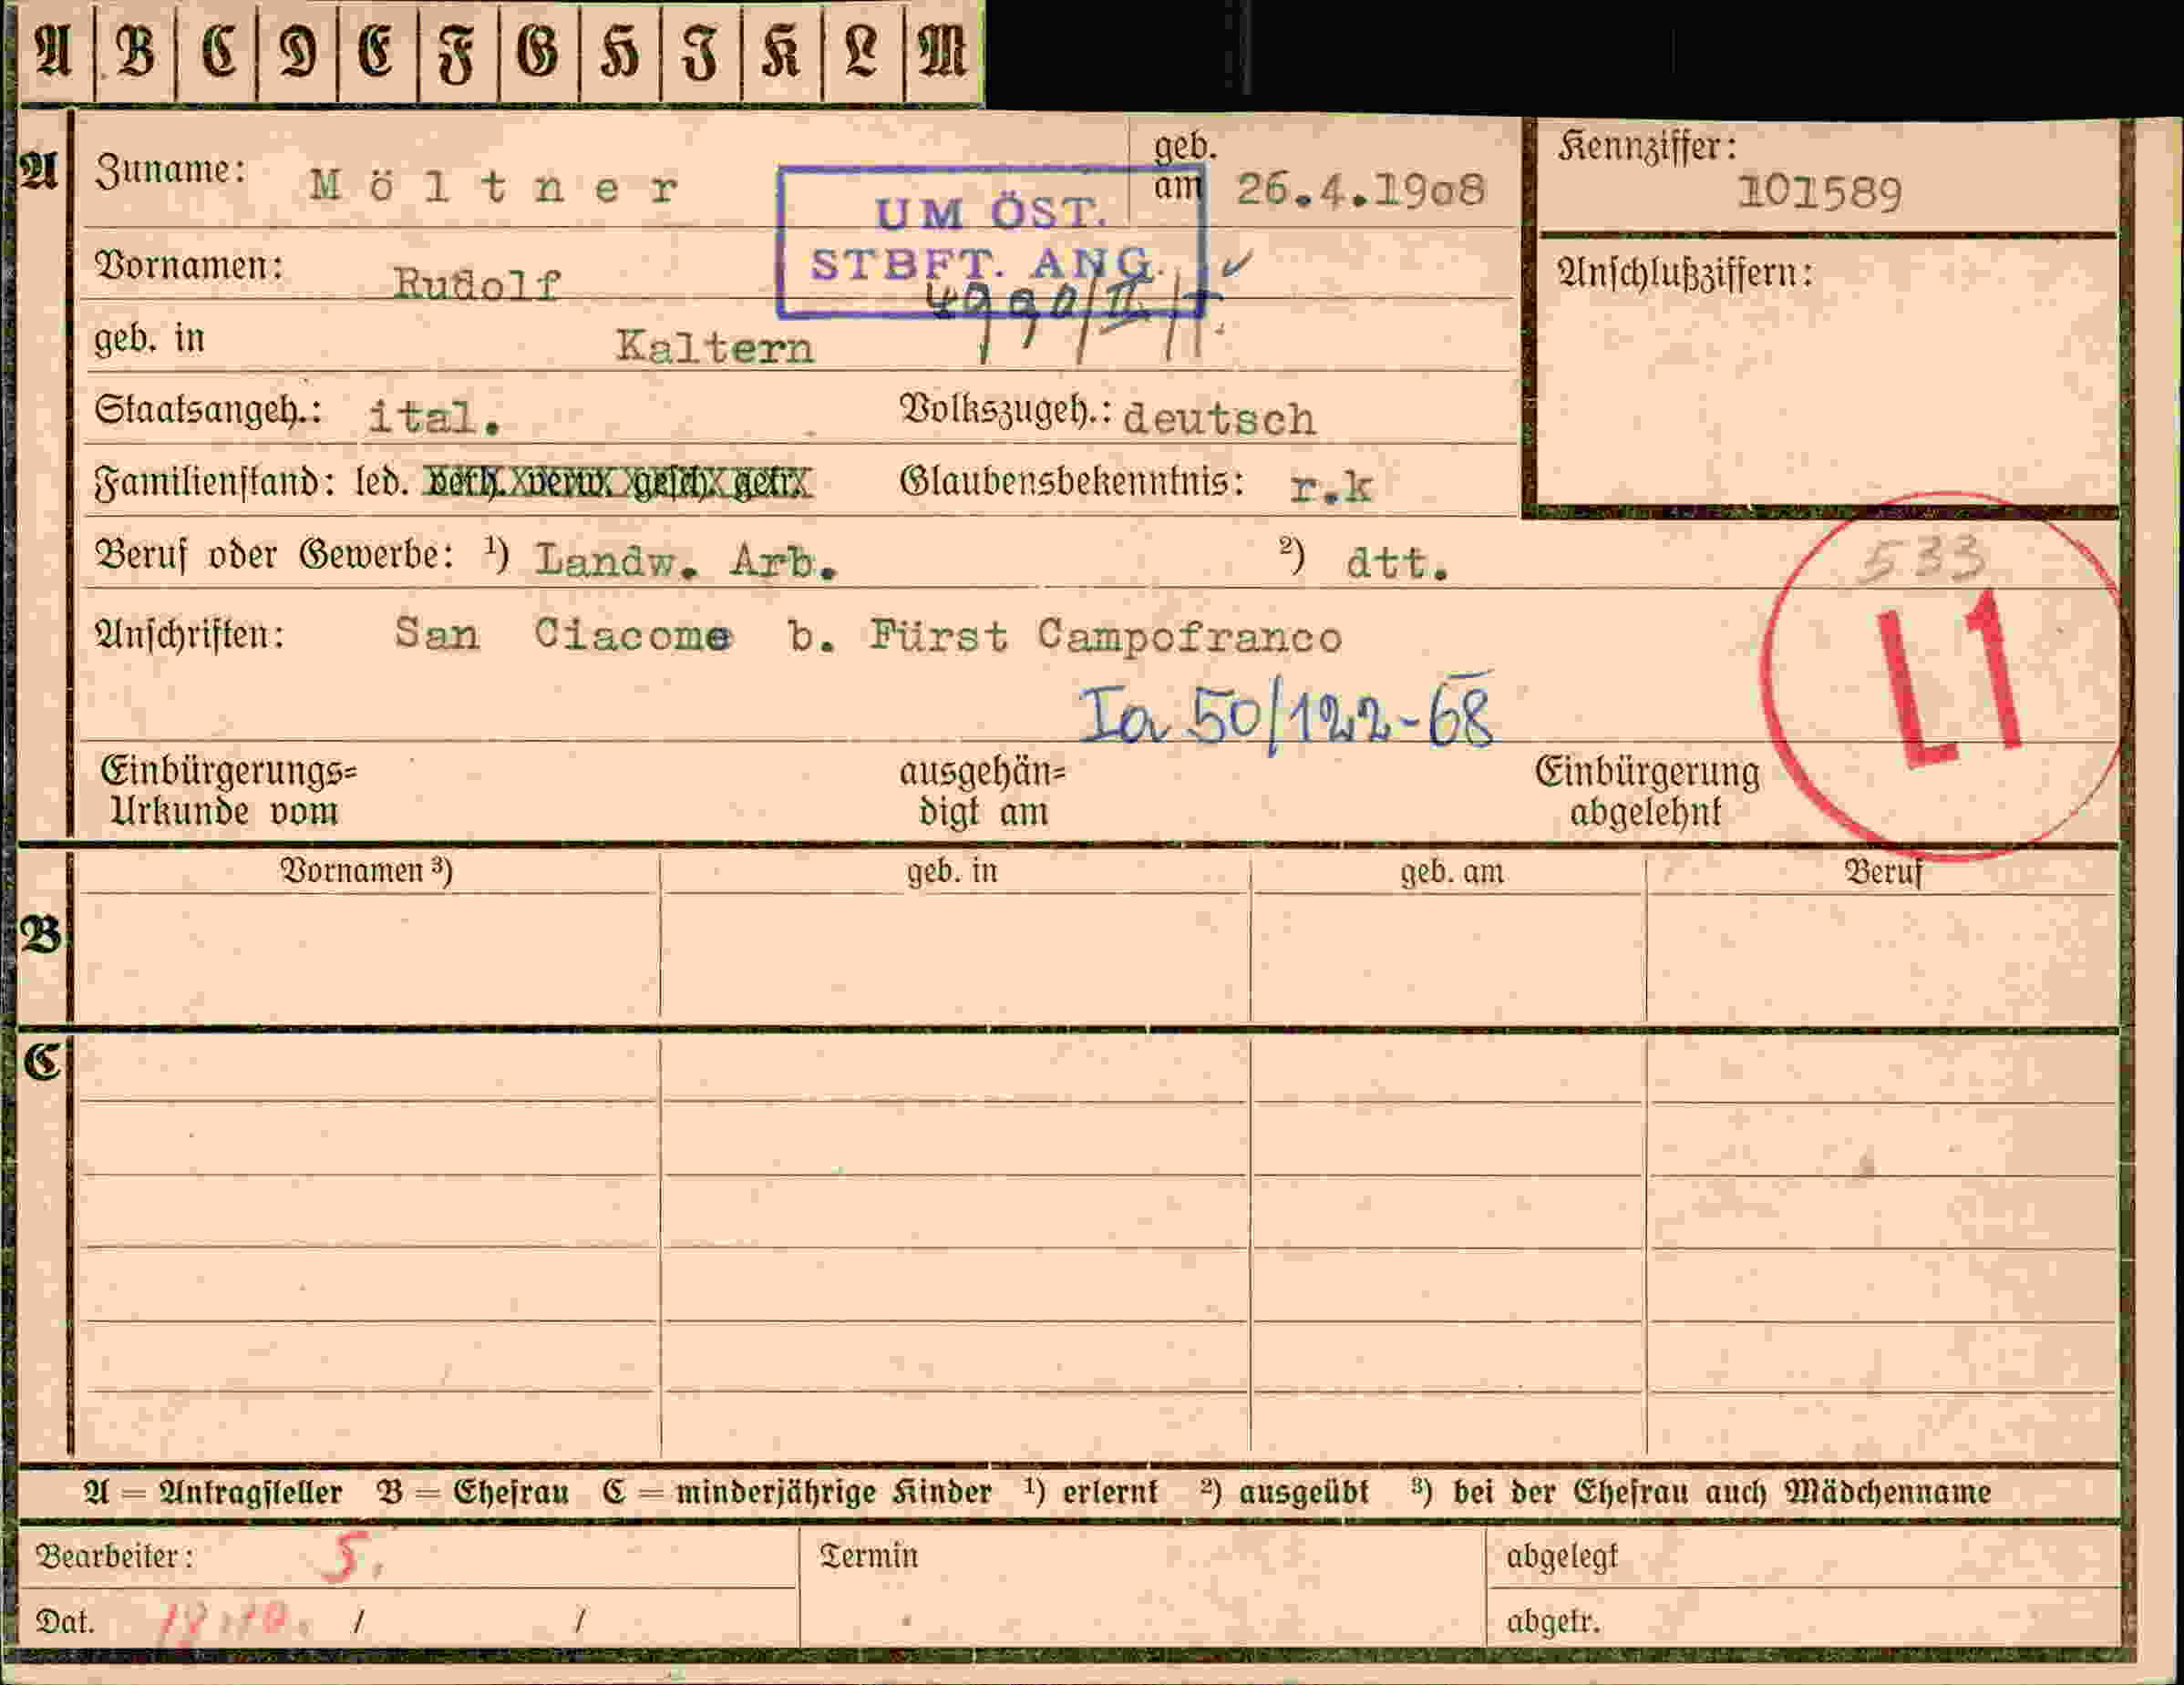 A B C D E F G H J K L M
A Zuname: Möltner geb. am 26.4.1908 Kennziffer: 101589
UM ÖST.
STBFT. ANG.
Vornamen: Rudolf
Anschlußziffern:
geb. in Kaltern
Staatsangeh.: ital. Volkszugeh.: deutsch
Familienstand: led. verh. verw. gesch. getr. Glaubensbekenntnis: r.k
Beruf oder Gewerbe: ¹) Landw. Arb. ²) dtt.
533
L1
Anschriften: San Ciacome b. Fürst Campofranco
Ia 50/122-68
Einbürgerungs= Urkunde vom ausgehän= digt am Einbürgerung abgelehnt
Vornamen ³) geb. in geb. am Beruf
B
C
A = Antragsteller B = Ehefrau C = minderjährige Kinder ¹) erlernt ²) ausgeübt ³) bei der Ehefrau auch Mädchenname
Bearbeiter: S. Termin abgelegt
Dat. / / abgetr.